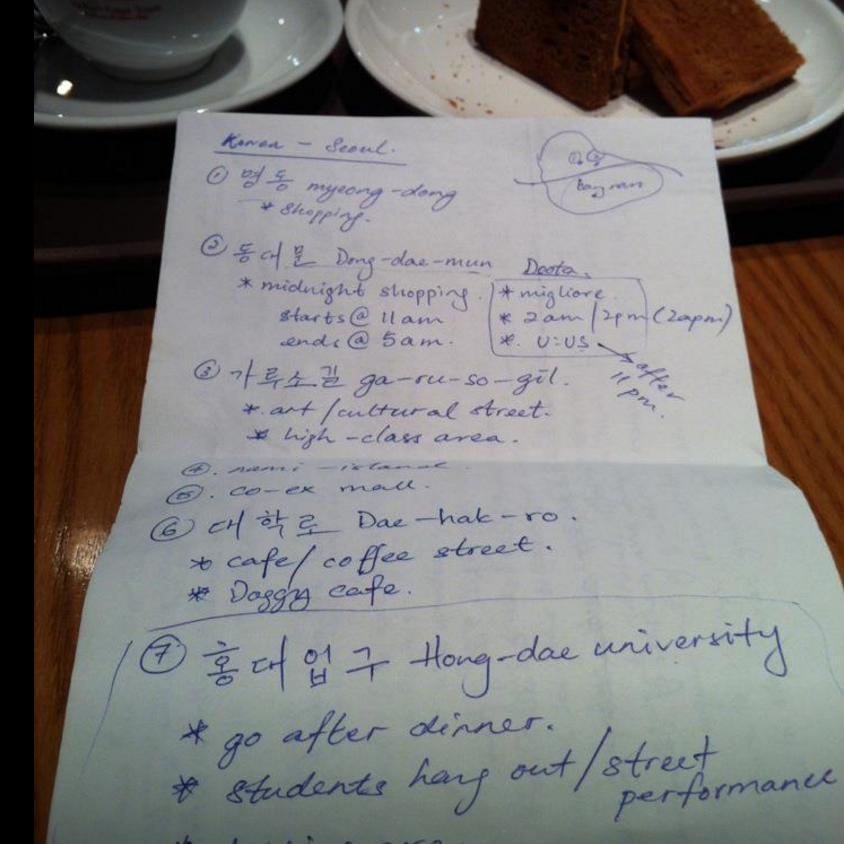 Korea - Seoul.
① 명동 myeong-dong
* shopping.
② 동대문 Dong-dae-mun
* midnight shopping.
starts @ 11am
ends @ 5am.
Doota.
* migliore
* 2am/2pm (2apm)
*. U:US
after
11pm.
③ 가루소길 ga-ru-so-gil.
* art/cultural street.
* high-class area.
④. nami-island.
⑤. co-ex mall.
⑥ 대학로 Dae-hak-ro.
* cafe/coffee street.
* Doggy cafe.
⑦ 홍대업구 Hong-dae university
* go after dinner.
* students hang out/street
performance